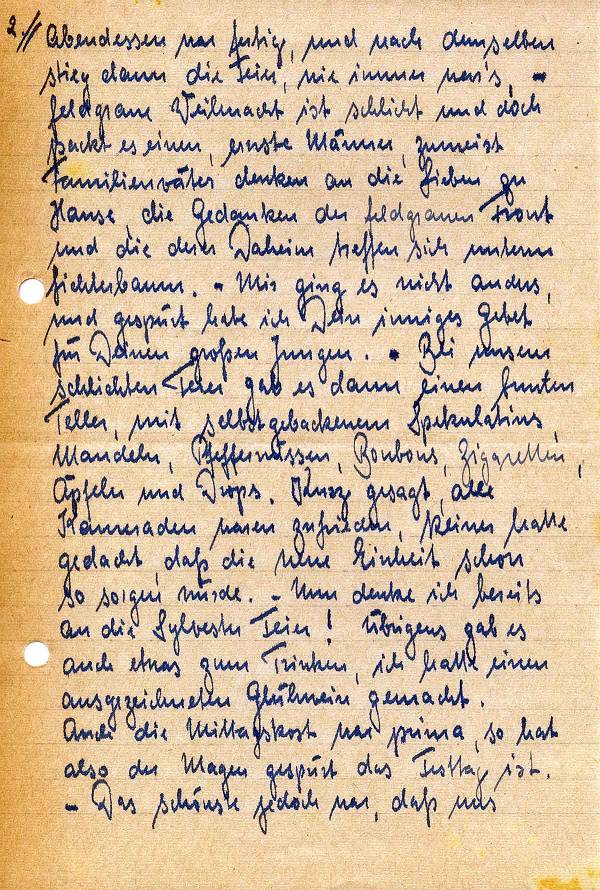 2.//
Abendessen war fertig, und nach demselben
stieg dann die Feier, wie immer war's, -
feldgraue Weihnacht ist schlicht und doch
packt es einen, ernste Männer, zumeist
Familienväter denken an die Lieben zu
Hause, die Gedanken der feldgrauen Front
und die derer Daheim treffen sich unterm
Lichterbaum. - Mir ging es nicht anders,
und gespürt habe ich Dein inniges Gebet
für Deinen großen Jungen. - Bei unsern
schlichten Feier gab es dann einen bunten
Teller, mit selbstgebackenem Spekulatius
Mandeln, Pfeffernüssen, Bonbons, Zigaretten,
Äpfeln und Drops. Kurz gesagt, alle
Kameraden waren zufrieden, keiner hatte
gedacht, daß die neue Einheit schon
so sorgen würde. - Nun denke ich bereits
an die Sylvester Feier! Übrigens gab es
auch etwas zum Trinken, ich hatte einen
ausgezeichneten Glühwein gemacht.
Auch die Mittagskost war prima, so hat
also der Magen gespürt das Festtag ist.
- Das schönste jedoch war, daß uns